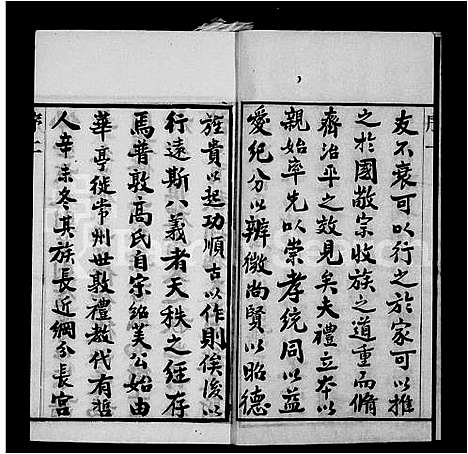 友不衰可以行之於家可以推
之於國敬宗收族之道重而脩
齊治平之效見矣夫禮立本以
親始率先以崇孝統同以益
愛紀分以辨微尚賢以昭德
旌貴以起功順古以作則俟後以
行遠斯八義者天秩之經存
焉普敦高氏自宋紹芙公始由
華亭徙常州世敦禮教代有哲
人辛未冬其族長近綱分長宮
序二